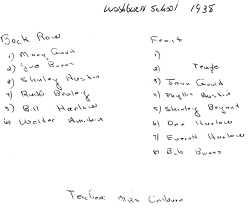 Washburn School 1938
Back Row
1) Mary Gould
2) Sue Burns
3) Shirley Austin
4) Ruth Bailey
5) Bill Harlow
6) Walter
Front
1)
2)
3) Gould
4) Phyllis Austin
5) Shirley Bryant
6) Don Harlow
7) Everett Harlow
8) Bob Burns
Teacher: Miss